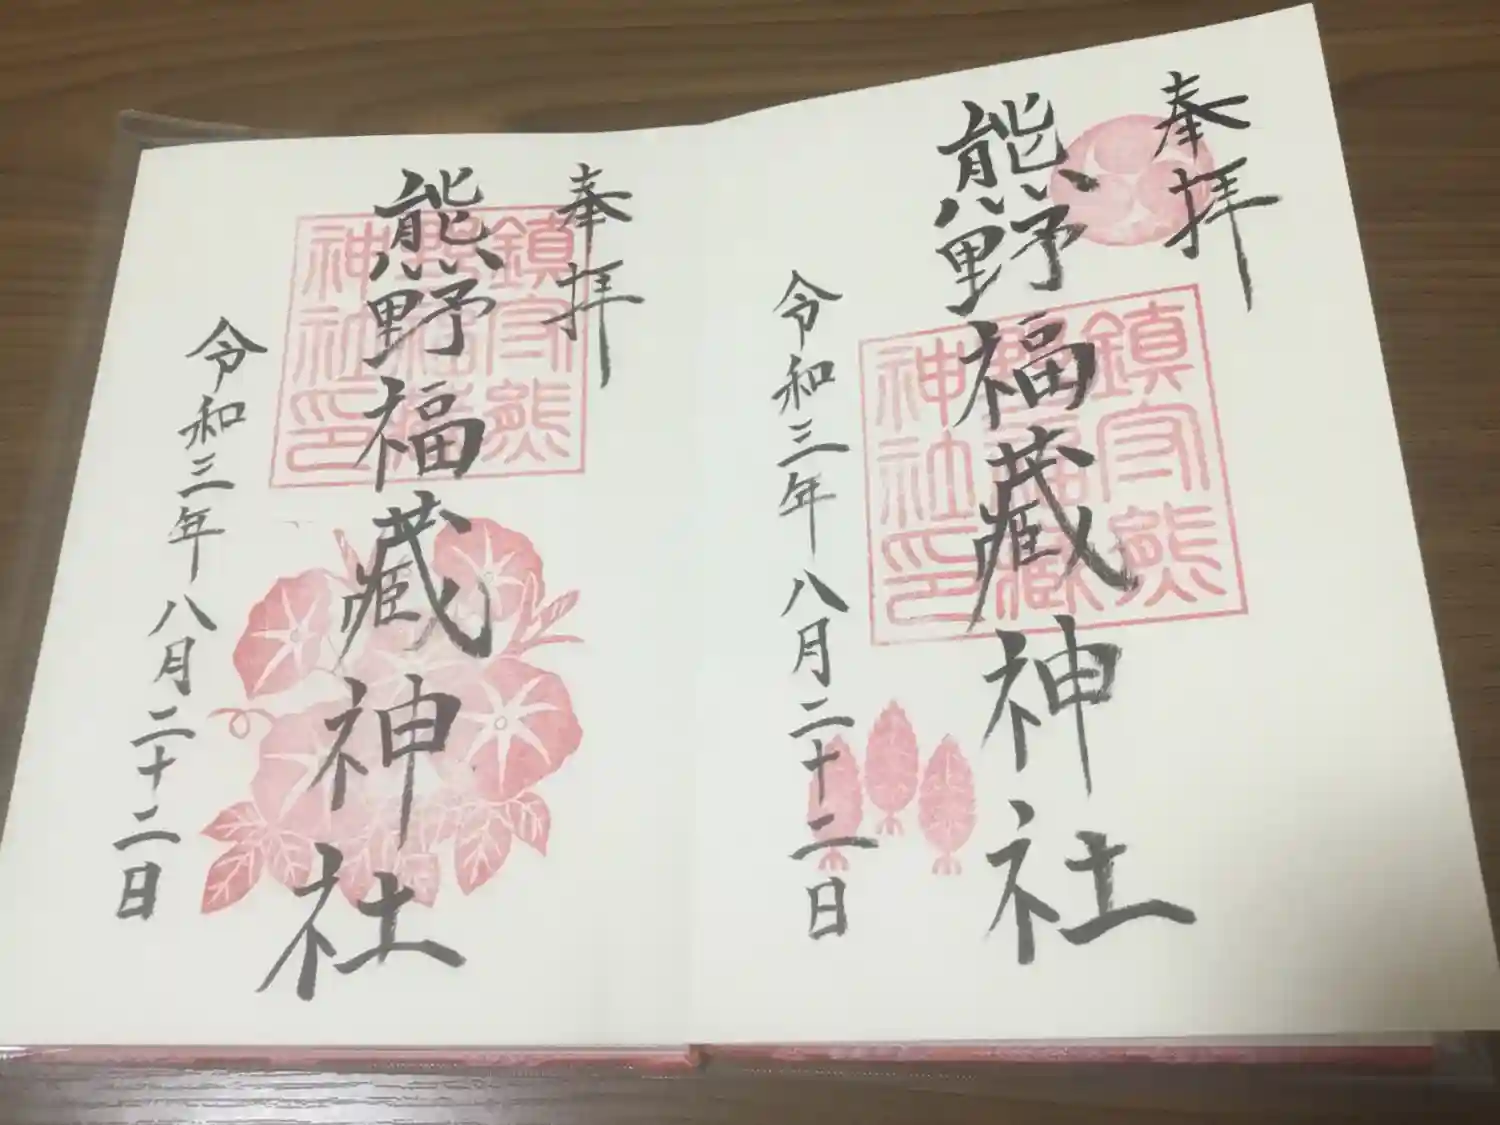 奉拝
熊野福蔵神社
令和三年八月二十二日
鎮守熊
野福蔵
神社印
奉拝
熊野福蔵神社
令和三年八月二十二日
鎮守熊
野福蔵
神社印